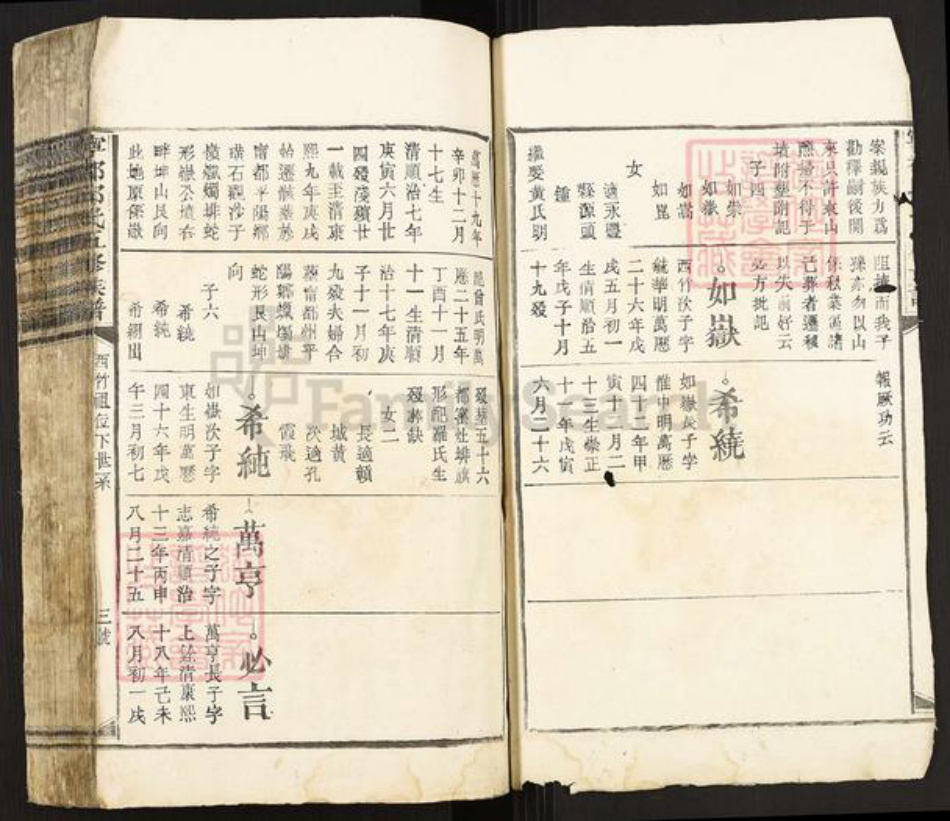 案親族力爲
勸釋嗣後開
來只許東山
熙婦不得于
墳附塟附記
子四
如崇
如嶽
如嵩
如崑
女
適永豐
縣源頭
鍾
繼娶黃氏明
阻撓而我子
孫亦勿以山
係秋葉滙諸
己葬者遷移
以失前好云
必方批記
如嶽
西竹次子字
毓華明萬歷
二十六年戊
戌五月初一
生清順治五
年戊子十月
十九歿
報厥功云
希繞
如嶽長子字
惟中明萬歷
四十二年甲
寅十一月二
十三生崇正
十一年戊寅
六月二十六
萬歷十九年
辛卯十二月
十七生
清順治七年
庚寅六月廿
四歿殘殯廿
一載至清康
熙九年庚戌
始遷骸塟於
甯都平陽鄉
璜石觀沙子
嶺蠟燭排蛇
形嶽公墳右
畔坤山艮向
此地原係嶽
配曾氏明萬
歷二十五年
丁酉十一月
十一生清順
治十七年庚
子十一月初
九歿夫婦合
塟甯都州平
陽鄉蠟燭排
蛇形艮山坤
向
子六
希繞
希純
希絅
歿塟五十六
都窰灶埠旗
形配羅氏生
歿塟缺
女二
長適賴
城黃
次適孔
霞張
希純
如嶽次子字
東生明萬歷
四十六年戊
午三月初七
萬亨
希純之子字
志嘉清順治
十三年丙申
八月二十五
必言
萬亨長子字
上銓清康熙
十八年己未
八月初一戌
西竹祖位下世系
三號
FamilySearch